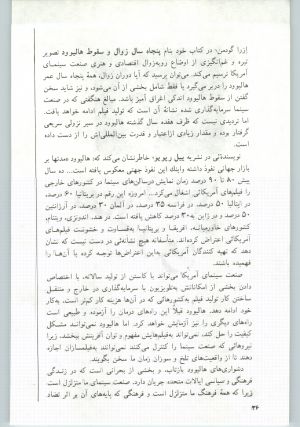 ازرا گودمن، در کتاب خود بنام پنجاه سال زوال و سقوط هالیوود تصویر
تیره و غم‌انگیزی از اوضاع روبه‌زوال اقتصادی و هنری صنعت سینمای
آمریکا ترسیم میکند. می‌توان پرسید که آیا دوران زوال، همهٔ پنجاه سال عمر
هالیوود را در بر میگیرد یا فقط شامل بخشی از آن می‌شود، و نیز شاید سخن
گفتن از سقوط هالیوود اندکی اغراق آمیز باشد. مبالغ هنگفتی که در صنعت
سینما سرمایه‌گذاری شده نشانهٔ آن است که تولید فیلم ادامه خواهد یافت.
اما تردیدی نیست که ظرف هفده سال گذشته هالیوود در سیر نزولی سریعی
گرفتار بوده و مقدار زیادی ازاعتبار و قدرت بین‌المللی‌اش را از دست داده
است.
نویسنده‌ئی در نشریه پیپل ریپورد خاطرنشان می‌کند که: هالیوود مدتها بر
بازار جهانی نفوذ داشته واینك این نفوذ جهانی معکوس یافته است.. ده سال
پیش ۸۰ تا ۹۰ درصد زمان نمایش درسالن‌های سینما در کشورهای خارجی
را فیلم‌های آمریکائی اشغال می‌کرد... امروزه این رقم در بریتانیا ۶۰ درصد،
در ایتالیا ۵۰ درصد، در فرانسه ۳۵ درصد، در آلمان ۳۰ درصد، در آرژانتین
۵۰ درصد و در ژاپن به۳۰ درصد کاهش یافته است. در هند، اندونزی، ویتنام،
کشورهای خاورمیانه، آفریقا و بریتانیا به‌قساوت و خشونت فیلم‌های
آمریکائی اعتراض کرده‌اند. متأسفانه هیچ نشانه‌ئی در دست نیست که نشان
دهد که تهیه کنندگان آمریکائی به‌این اعتراض‌ها توجه کرده یا آن‌ها را
فهمیده باشند.
صنعت سینمای آمریکا می‌تواند با کاستن از تولید سالانه، با اختصاص
دادن بخشی از امکاناتش به‌تلویزیون با سرمایه‌گذاری در خارج و منتقل
ساختن کار تولید فیلم به‌کشورهائی که در آن‌ها هزینه کار کم‌تر است، به‌کار
خود ادامه دهد. هالیوود قبلاً این راه‌های درمان را آزموده و طبیعی است
راه‌های دیگری را نیز آزمایش خواهد کرد. اما هالیوود نمی‌توانند مشکل
کیفیت را حل کند، نمی‌تواند به‌فیلم‌هایش مفهوم و توان آفرینش ببخشد، زیرا
کسانی که صنعت سینما را کنترل می‌کنند نمی‌توانند به‌فیلمسازان اجازه
دهند تا از واقعیت‌های تلخ و سوزان زمان ما، سخن بگویند.
دشواری‌های هالیوود بازتاب، و بخشی از بحرانی است که در زندگی
فرهنگی و سیاسی ایالات متحده جریان دارد. صنعت سینمای ما متزلزل است
زیرا که همهٔ فرهنگ ما متزلزل است و فرهنگی که پایه‌های آن بر اثر تضاد
۳۶